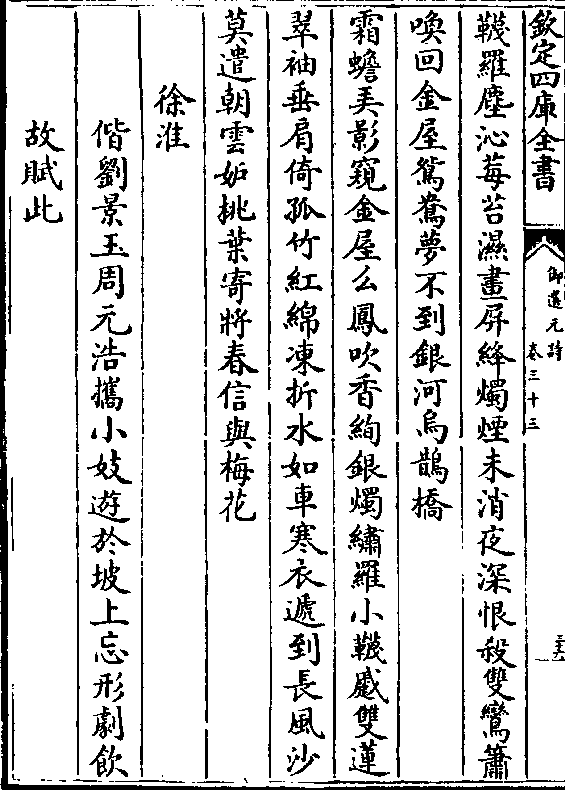 欽定四庫全書
御選元詩
卷三十三
韈羅塵沁莓苔濕畫屏絳燭煙未消夜深恨殺雙鸞簫
喚回金屋鴛鴦夢不到銀河烏鵲橋
霜蟾美影窺金屋么鳳吹香絢銀燭繡羅小韈蹙雙蓮
翠袖垂肩倚孤竹紅綿凍折水如車寒衣遞到長風沙
莫遣朝雲妬挑葉寄將春信與梅花
徐淮
偕劉景玉周元浩攜小妓遊於坡上忘形劇飲
故賦此